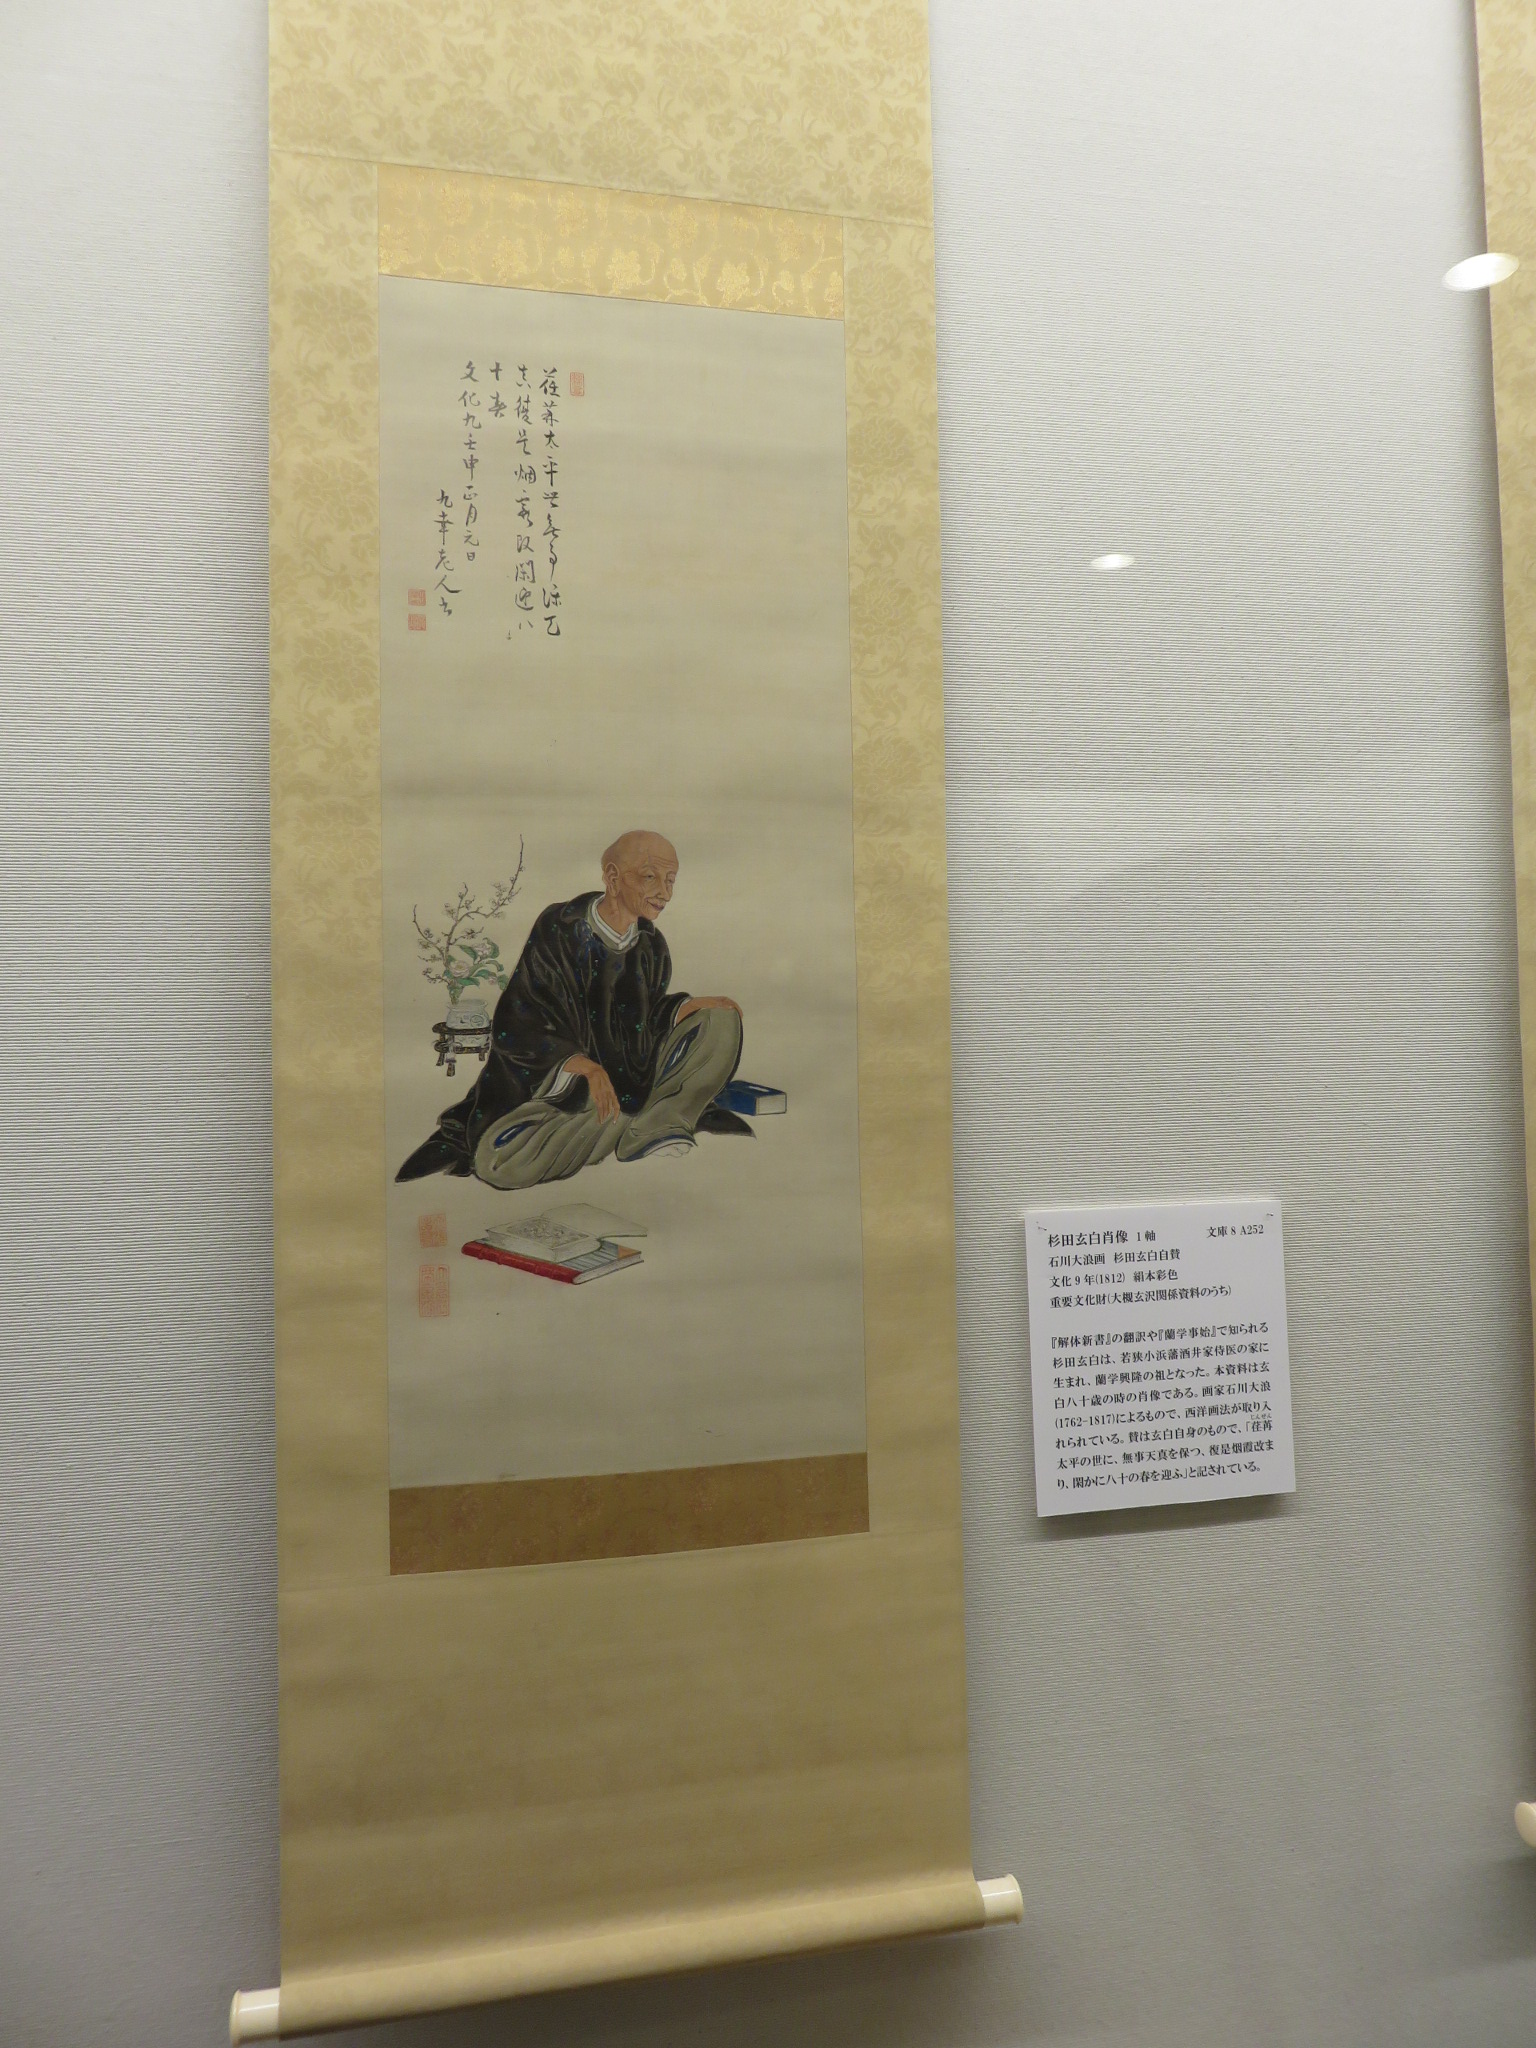 荏苒太平世無事保天
真復是烟霞改閑迎八
十春
文化九壬申正月元日
九幸老人書
杉田玄白肖像 1軸 文庫 8 A252
石川大浪画 杉田玄白自賛
文化 9 年(1812) 絹本彩色
重要文化財(大槻玄沢関係資料のうち)
『解体新書』の翻訳や『蘭学事始』で知られる
杉田玄白は、若狭小浜藩酒井家侍医の家に
生まれ、蘭学興隆の祖となった。本資料は玄
白八十歳の時の肖像である。画家石川大浪
(1762-1817)によるもので、西洋画法が取り入
れられている。賛は玄白自身のもので、「荏苒
じんぜん
太平の世に、無事天真を保つ、復是烟霞改ま
り、閑かに八十の春を迎ふ」と記されている。